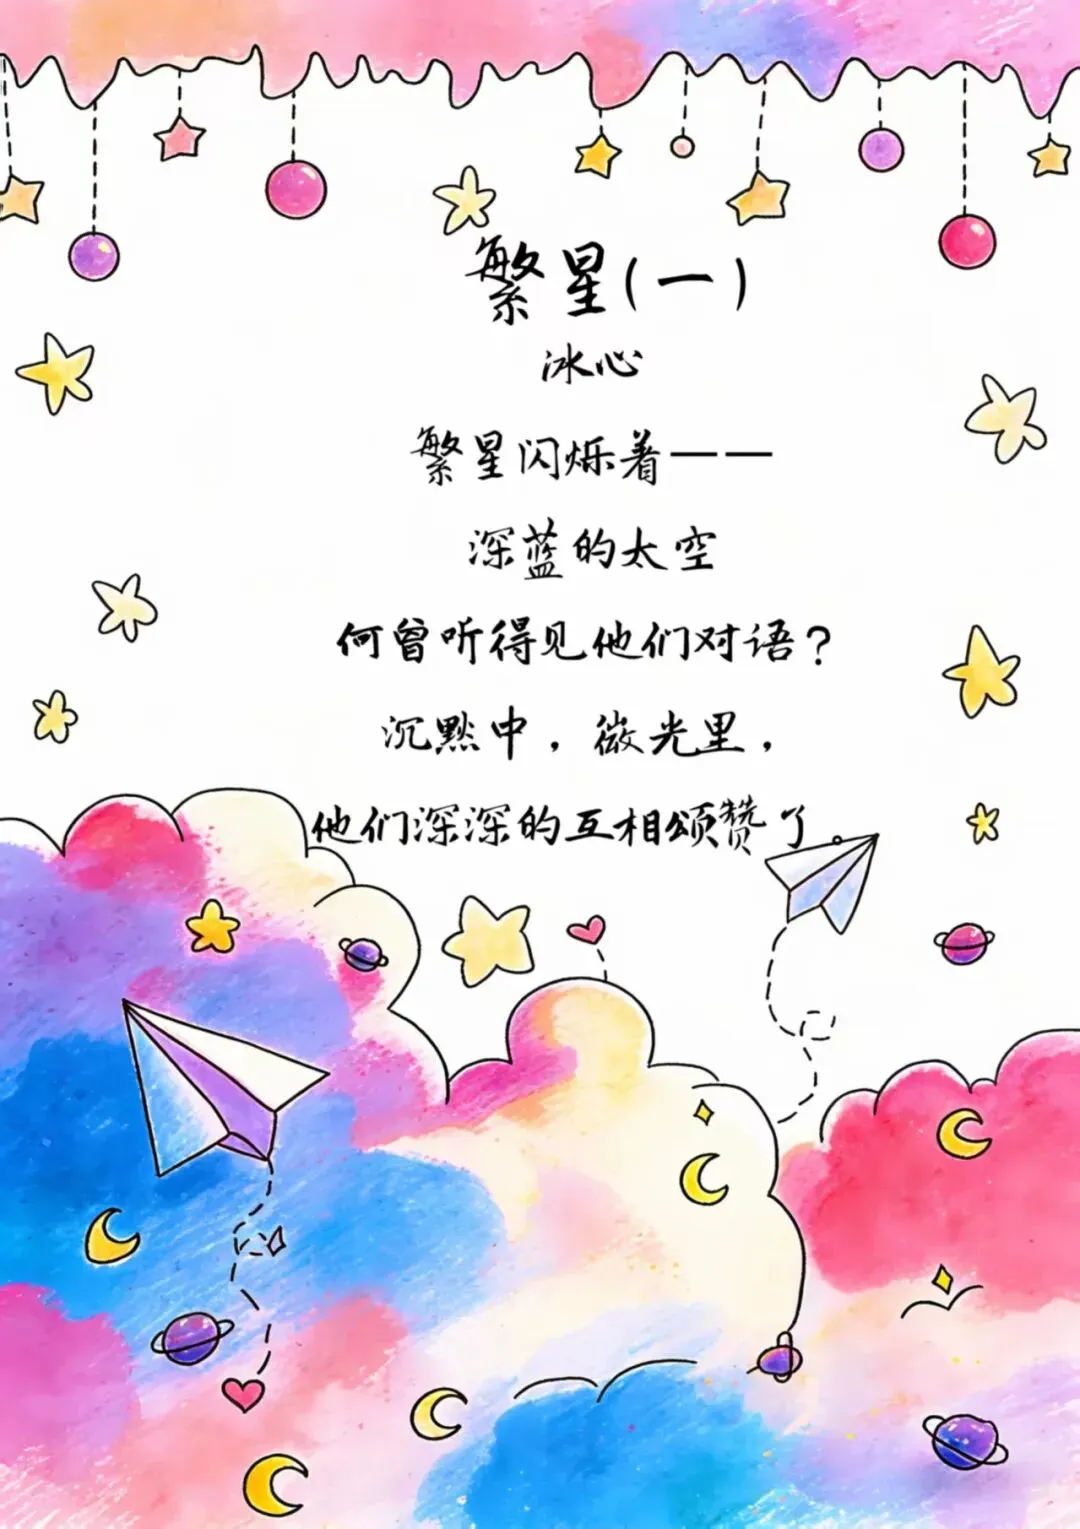 繁星(一)
冰心
繁星闪烁着——
深蓝的太空
何曾听得见他们对语?
沉默中,微光里,
他们深深的互相颂赞了